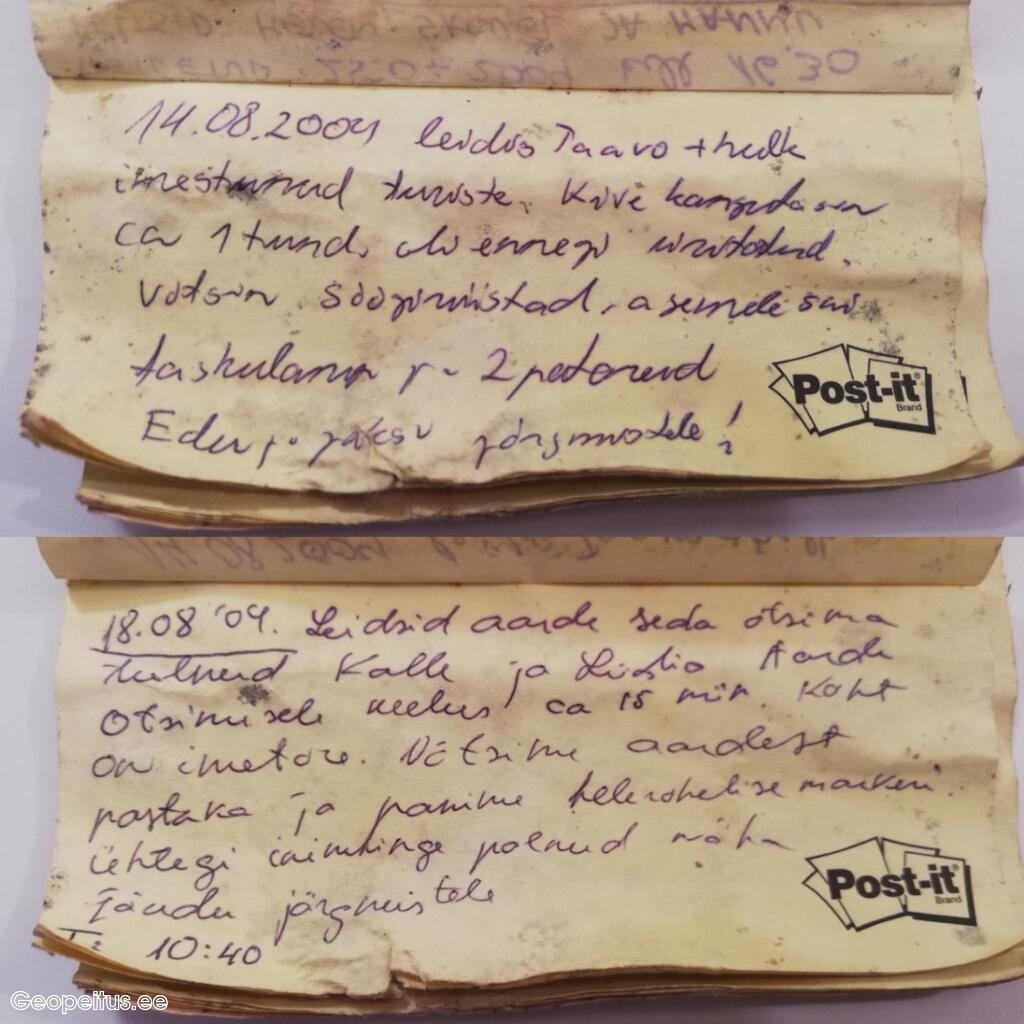 25.07.2004 kell 16.30
14.08.2004 leidis Taavo + hulk
imestunud turiste. Kive kangutasin
ca 1 tund, oli ennegi
Võtsin söögiriistad, asemele sai
taskulamp ja 2 patareid
Edu ja jaksu järgmistele!
Post-it®
Brand
18.08 '04. Leidsid aarde seda otsima
tulnud Kalle ja Aarde
otsimisele kulus ca 15 min. Koht
on imetore. Võtsime aardest
pastaka ja panime helerohelise markeri.
Ühtegi inimhinge polnud näha
Jõudu järgmistele
10:40
Post-it®
Brand
Geopeitus.ee